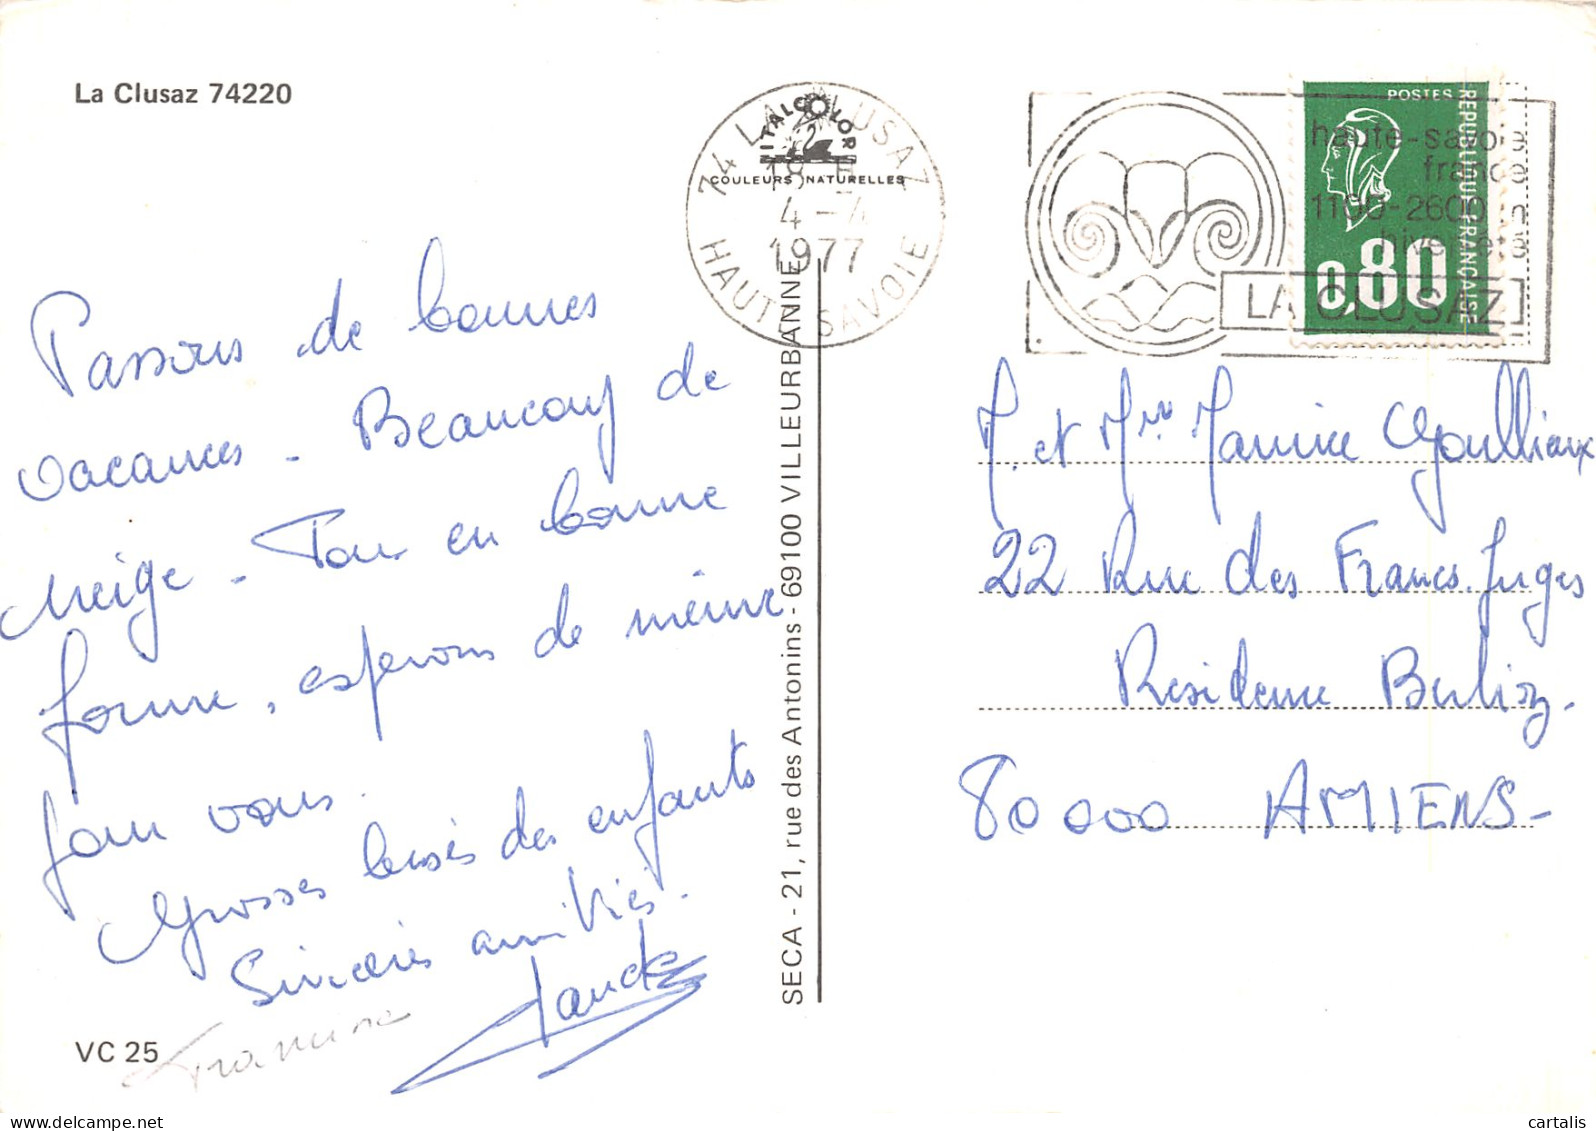 La Clusaz 74220
Passons de bonnes
vacances - Beaucoup de
neige - Tous en bonne
forme, esperons de même
pour vous.
Grosses bises des enfants
Sincères amitiés.
VC 25
ITALCOLOR
COULEURS NATURELLES
74 LA CLUSAZ
4-4
1977
HAUTE SAVOIE
SECA - 21, rue des Antonins - 69100 VILLEURBANNE
POSTES
REPUBLIQUE FRANÇAISE
0,80
haute-savoie
france
1100-2600 m
hiver-été
LA CLUSAZ
M. et Mme Maurice
22 Rue des Francs Juges
Résidence Berlioz.
80000 AMIENS -